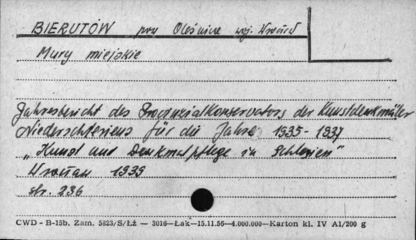 BIERUTÓW pow Oleśnica woj. Wrocław
Mury miejskie
Jahresbericht des Provinzialkonservators der Kunstdenkmäler
Niederschlesiens für die Jahre 1935-1937
„Kunst und Denkmalpflege in Schlesien"
Wrocław 1939
str. 236
CWD - B-15b. Zam. 5823/S/ŁŻ — 3016—Łak—15.11.56—4.000.000—Karton kl. IV A1/200 g